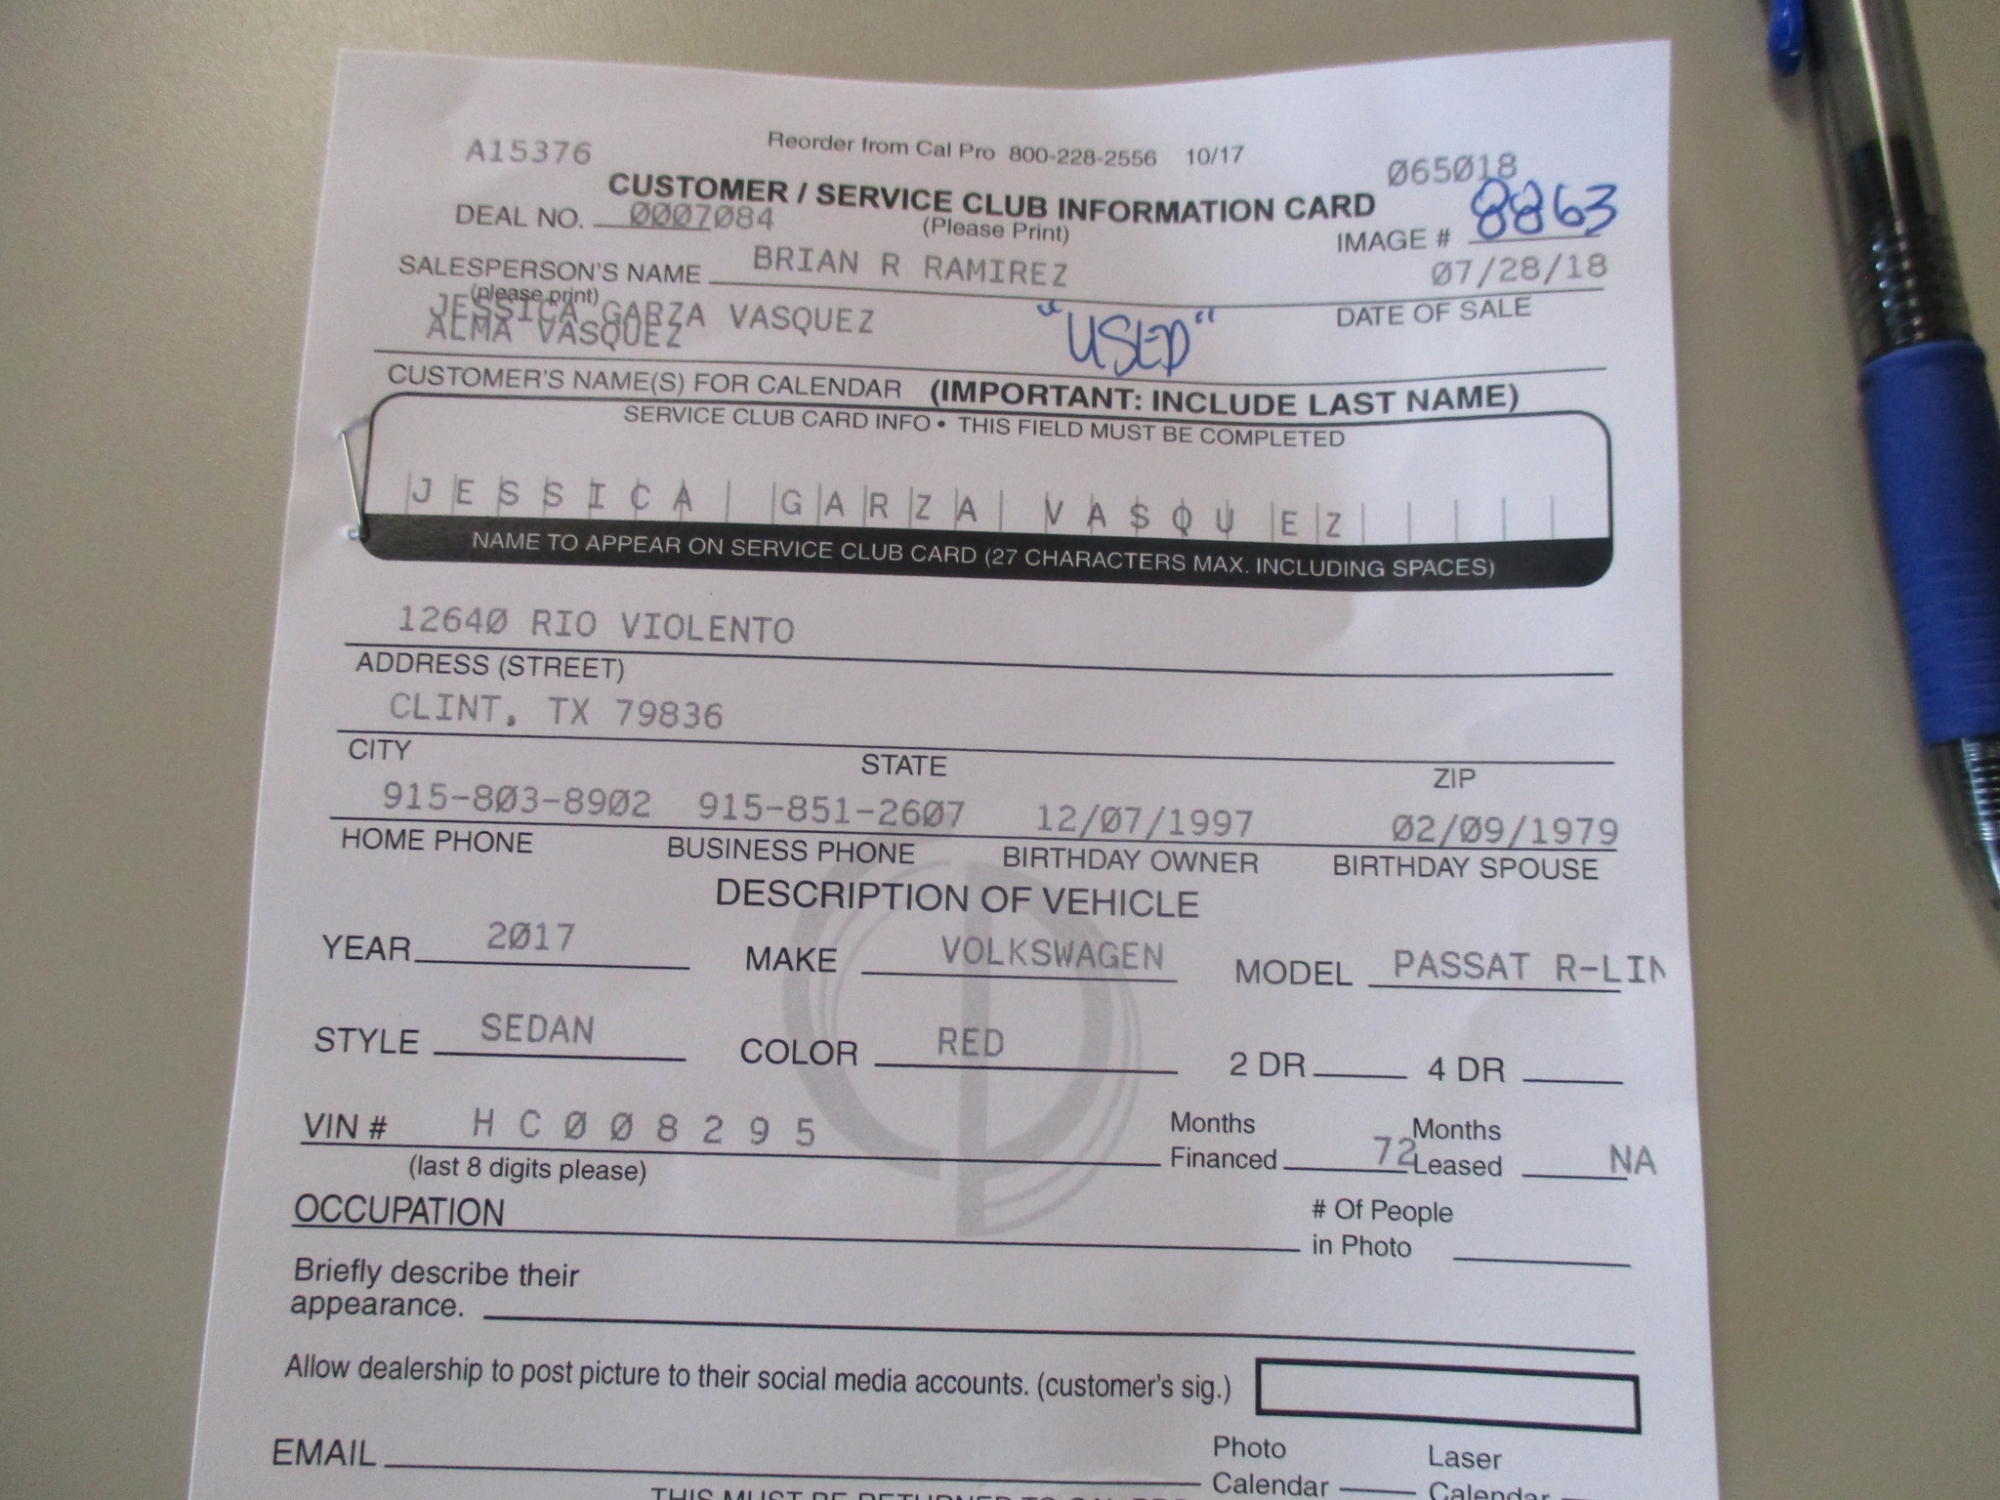 A15376 Reorder from Cal Pro 800-228-2556 10/17 065018
CUSTOMER / SERVICE CLUB INFORMATION CARD
DEAL NO. 0007084 (Please Print) IMAGE # 8863
SALESPERSON'S NAME BRIAN R RAMIREZ 07/28/18
(please print) DATE OF SALE
JESSICA GARZA VASQUEZ "USED"
ALMA VASQUEZ
CUSTOMER'S NAME(S) FOR CALENDAR (IMPORTANT: INCLUDE LAST NAME)
SERVICE CLUB CARD INFO • THIS FIELD MUST BE COMPLETED
JESSICA GARZA VASQUEZ
NAME TO APPEAR ON SERVICE CLUB CARD (27 CHARACTERS MAX. INCLUDING SPACES)
12640 RIO VIOLENTO
ADDRESS (STREET)
CLINT, TX 79836
CITY STATE ZIP
915-803-8902 915-851-2607 12/07/1997 02/09/1979
HOME PHONE BUSINESS PHONE BIRTHDAY OWNER BIRTHDAY SPOUSE
DESCRIPTION OF VEHICLE
YEAR 2017 MAKE VOLKSWAGEN MODEL PASSAT R-LIN
STYLE SEDAN COLOR RED 2 DR 4 DR
VIN # H C 0 0 8 2 9 5 Months Financed 72 Months Leased NA
(last 8 digits please)
OCCUPATION # Of People in Photo
Briefly describe their
appearance.
Allow dealership to post picture to their social media accounts. (customer's sig.)
EMAIL Photo Calendar Laser Calendar